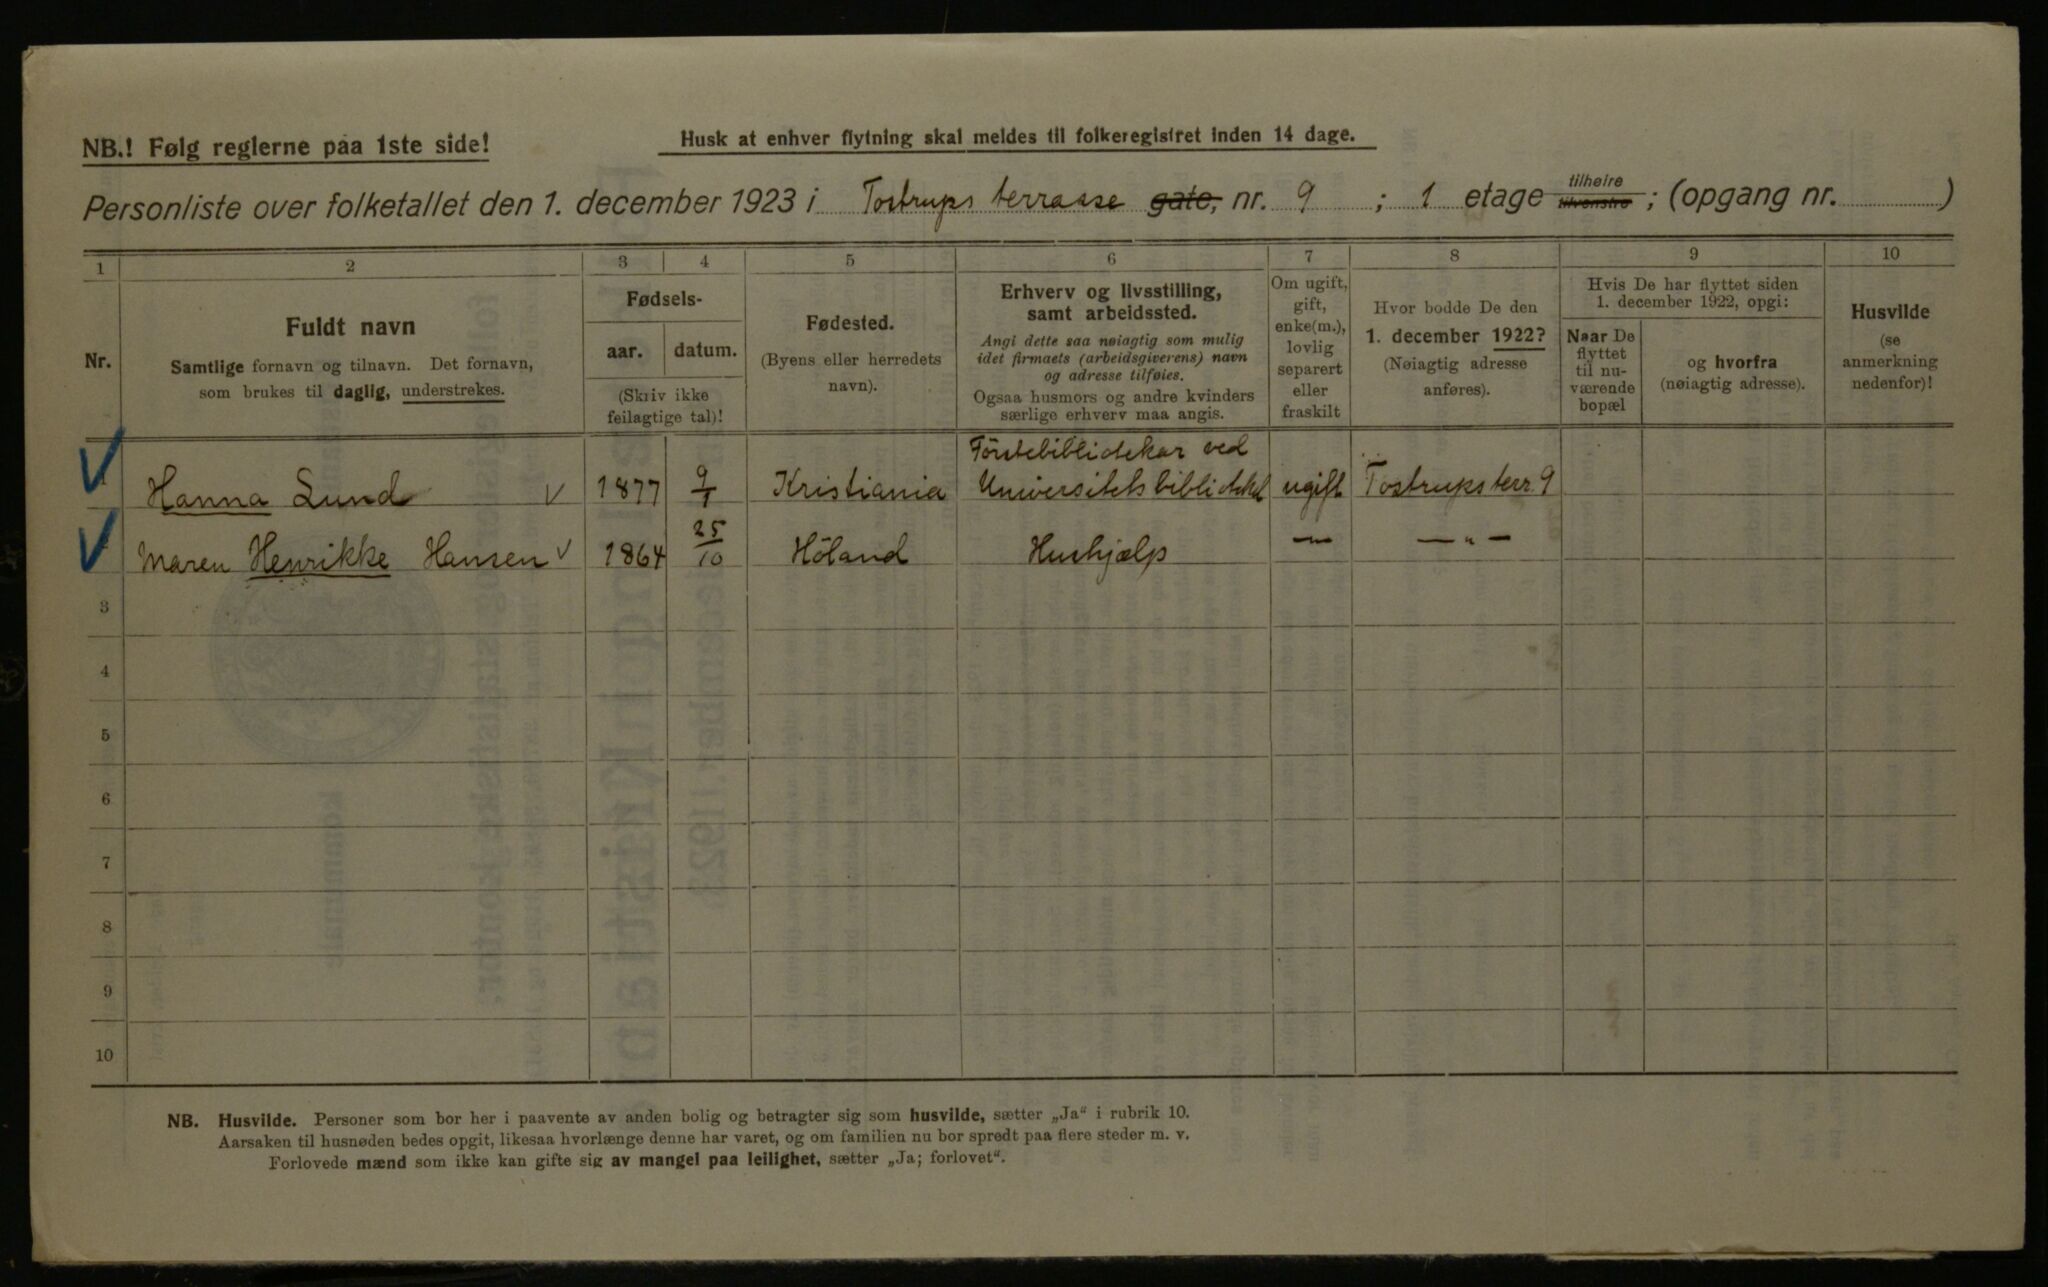 NB.! Følg reglerne paa 1ste side!
Husk at enhver flytning skal meldes til folkeregistret inden 14 dage.
Personliste over folketallet den 1. december 1923 i Tostrups terrasse gate, nr. 9 ; 1 etage tilhøire tilvenstre ; (opgang nr. )
1 2 3 4 5 6 7 8 9 10
Nr.
Fuldt navn
Samtlige fornavn og tilnavn. Det fornavn,
som brukes til daglig, understrekes.
Fødsels-
aar. datum.
(Skriv ikke
feilagtige tal)!
Fødested.
(Byens eller herredets
navn).
Erhverv og livsstilling,
samt arbeidssted.
Angi dette saa nøiagtig som mulig
idet firmaets (arbeidsgiverens) navn
og adresse tilføies.
Ogsaa husmors og andre kvinders
særlige erhverv maa angis.
Om ugift,
gift,
enke(m.),
lovlig
separert
eller
fraskilt
Hvor bodde De den
1. december 1922?
(Nøiagtig adresse
anføres).
Hvis De har flyttet siden
1. december 1922, opgi:
Naar De
flyttet
til nu-
værende
bopæl
og hvorfra
(nøiagtig adresse).
Husvilde
(se
anmerkning
nedenfor)!
Hanna Lund v 1877 9/1 Kristiania Förstebibliotekar ved Universitetsbiblioteket ugift Tostrups terr. 9
Maren Henrikke Hansen v 1864 25/10 Höland Hushjælp — — " —
3
4
5
6
7
8
9
10
NB. Husvilde. Personer som bor her i paavente av anden bolig og betragter sig som husvilde, sætter „Ja“ i rubrik 10.
Aarsaken til husnøden bedes opgit, likesaa hvorlænge denne har varet, og om familien nu bor spredt paa flere steder m. v.
Forlovede mænd som ikke kan gifte sig av mangel paa leilighet, sætter „Ja; forlovet“.